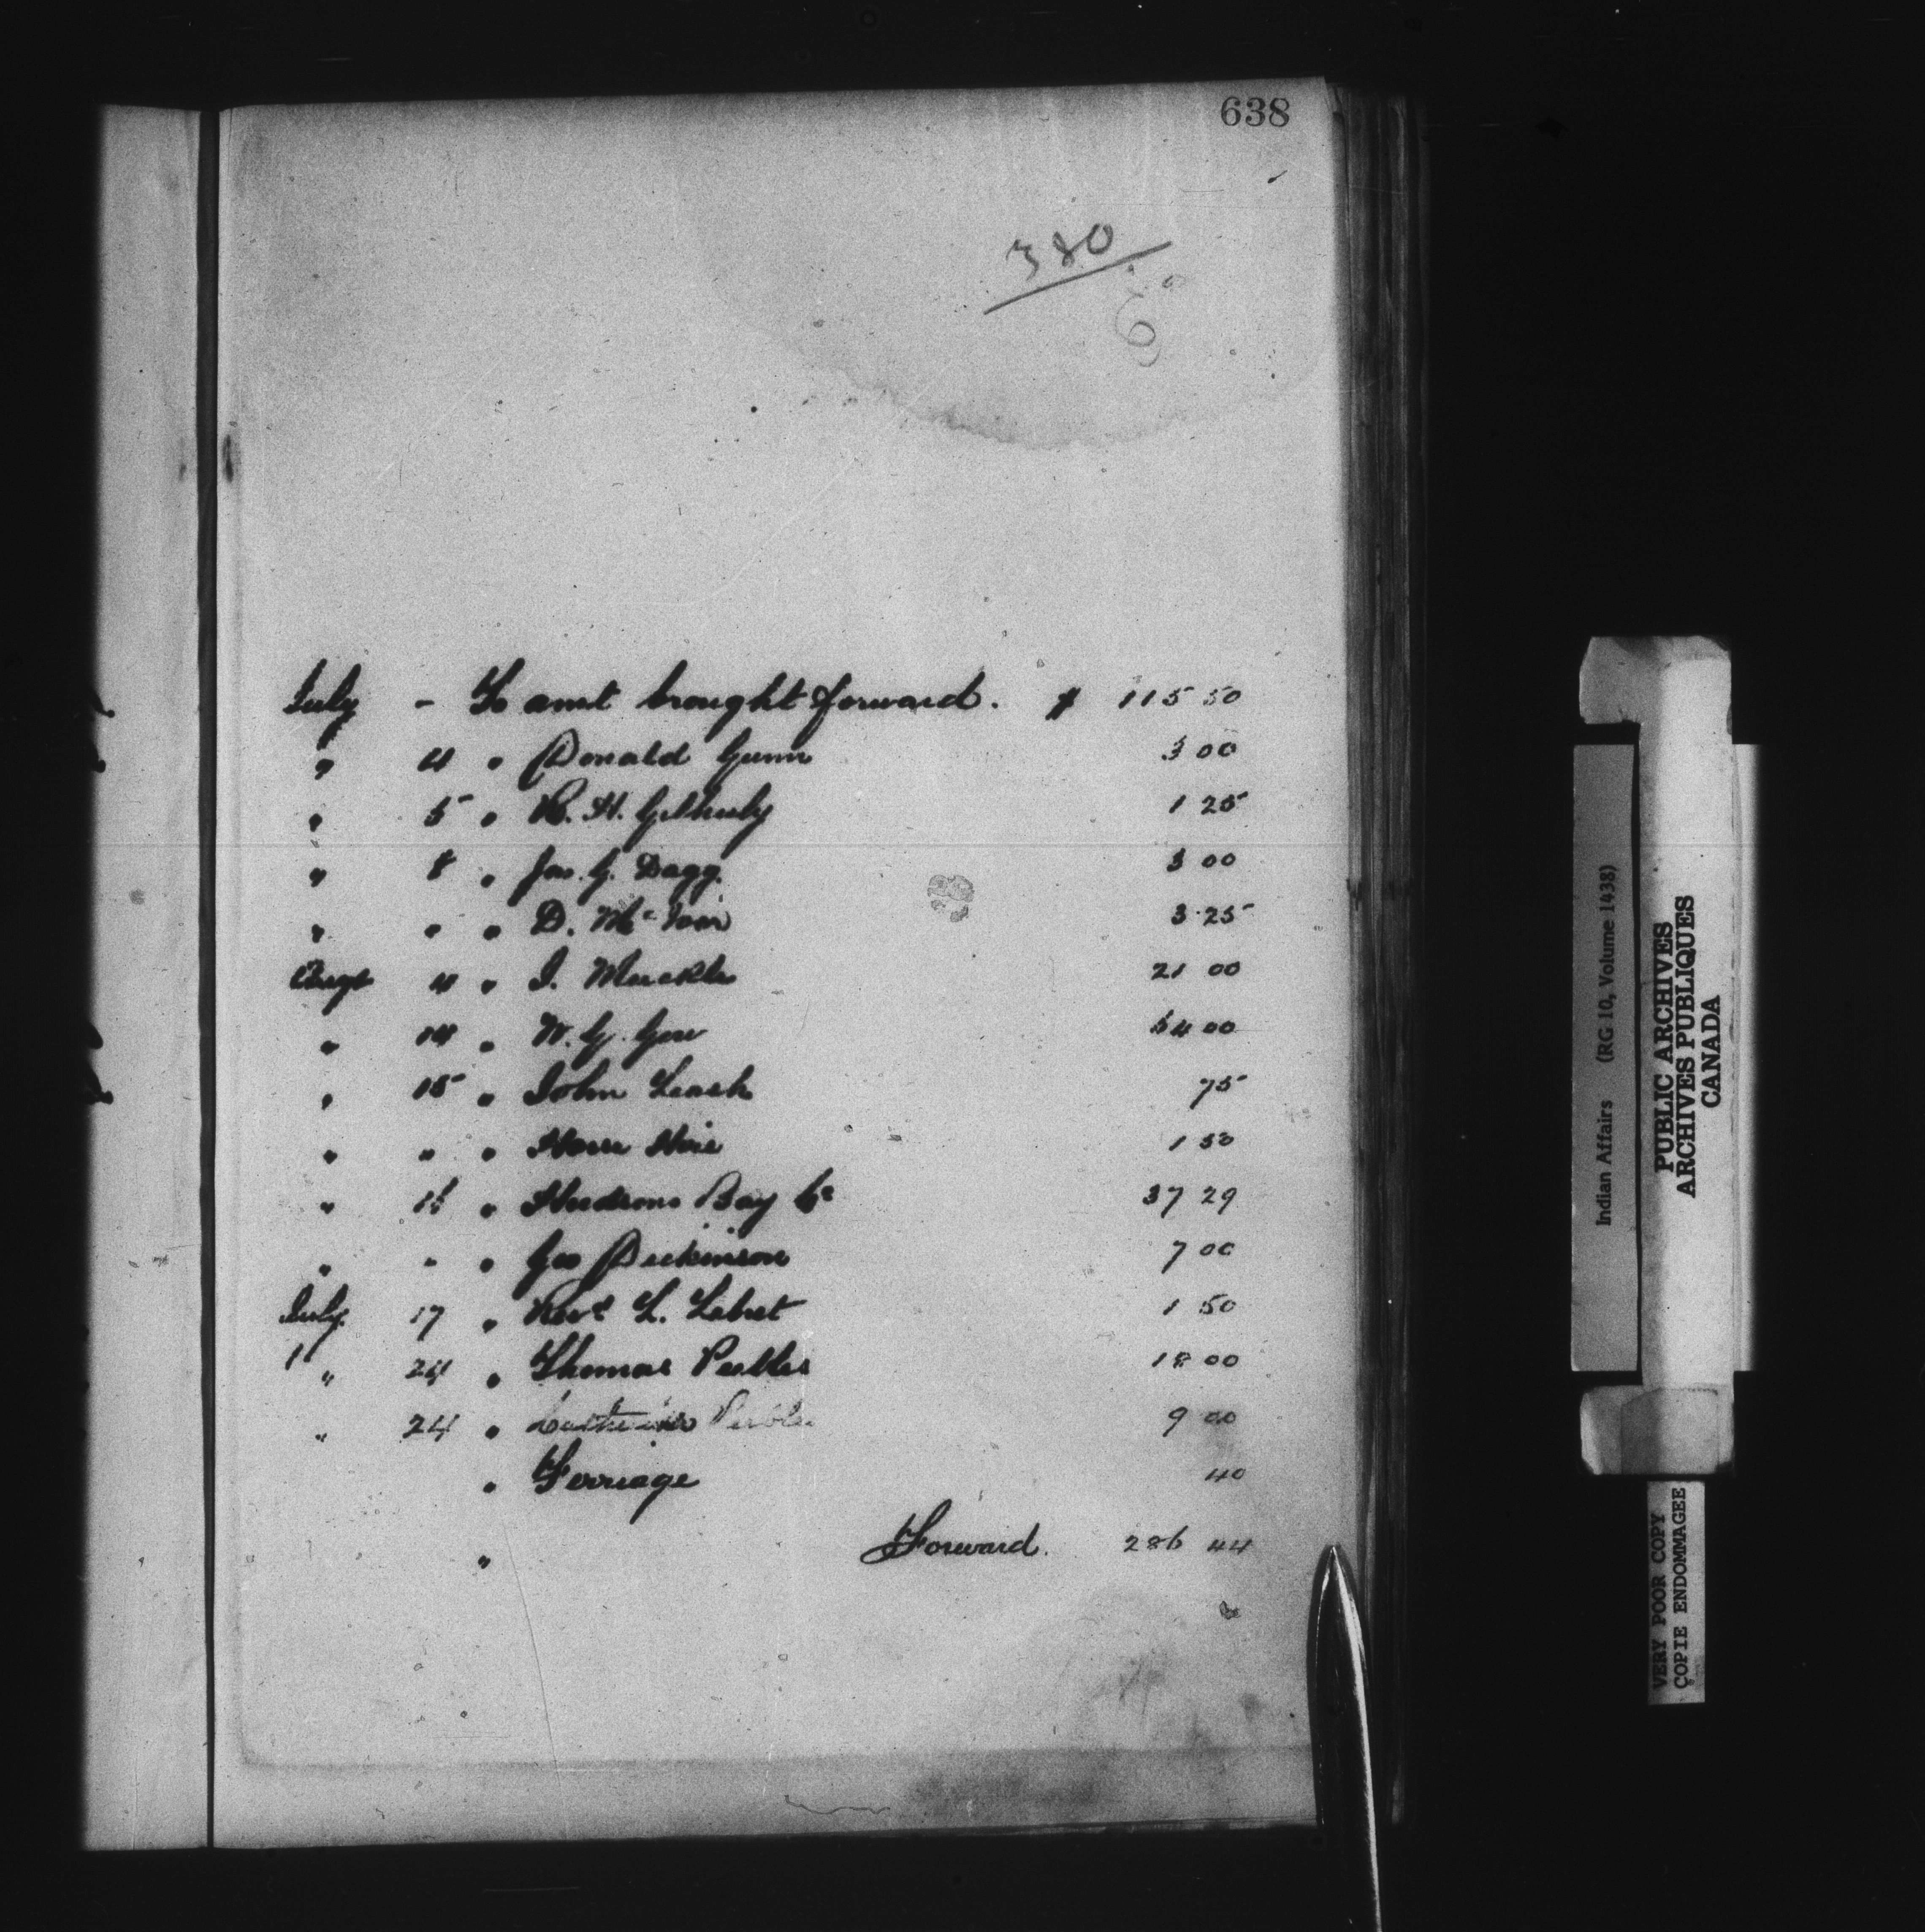 638
380
July - To amt brought forward. $ 115 50
" 4 " Donald Gunn 3 00
" 5 " R. H. 1 25
" 8 " Jas. G. Dagg. 3 00
" " " D. Mc 3.25
Augt 4 " J. Muckle 21 00
" 14 " W. G. Gow 54 00
" 15 " John Leask 75
" " " Horse Hire 1 50
" 16 " Hudsons Bay Co 37 29
" " " Geo Dickinson 7 00
July 17 " Revd L. Lebret 1 50
" 24 " Thomas Peebles 18 00
" 24 " Catherine Peebles 9 00
" Ferriage 40
" Forward. 286 44
Indian Affairs (RG 10, Volume 1438)
PUBLIC ARCHIVES
ARCHIVES PUBLIQUES
CANADA
VERY POOR COPY
COPIE ENDOMMAGEE